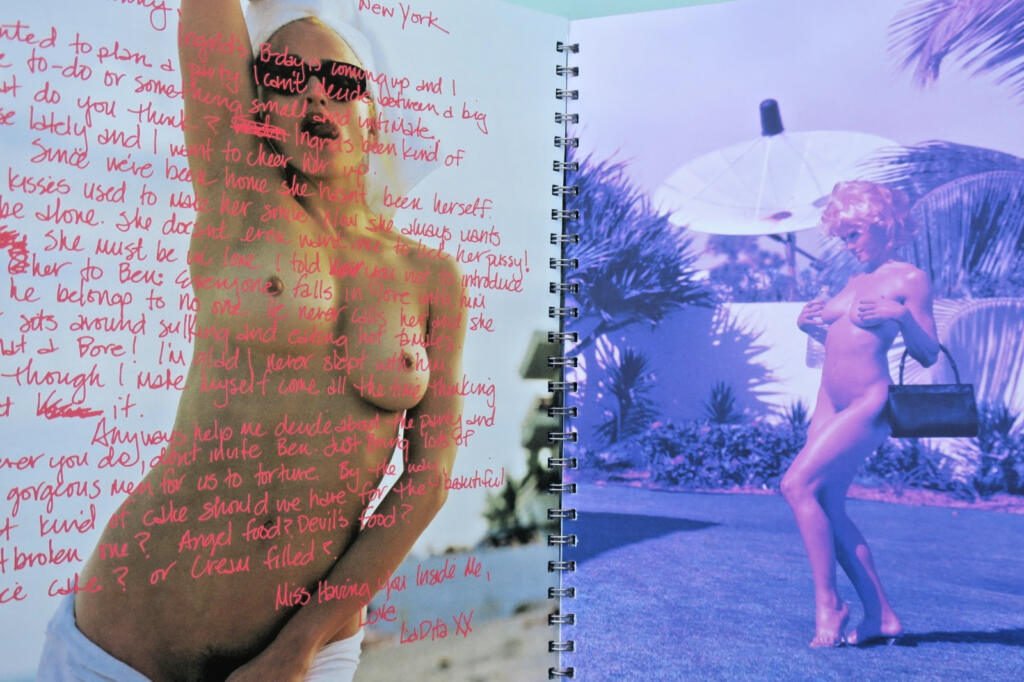 New York
Ingrid's B-day is coming up and I
to plan a party. I can't decide between a big
to-do or something small and intimate.
do you think? Ingrid's been kind of
lately and I want to cheer her up.
Since we've been home she hasn't been herself.
kisses used to make her smile. Now she always wants
be alone. She doesnt even want me to lick her pussy!
She must be in love. I told you not to introduce
her to Ben. Everyone falls in love with him
he belongs to no one. He never calls her and she
sits around sulking and eating hot tamales.
a Bore! I'm glad I never slept with him
Though I make myself come all the time thinking
it.
Anyways, help me decide about the party and
you do, don't invite Ben. Just bring lots of
gorgeous men for us to torture. By the way
kind of cake should we have for the beautiful
broken one? Angel food? Devil's food?
cake? or Cream filled?
Miss Having you Inside Me,
Love,
La Dita XX